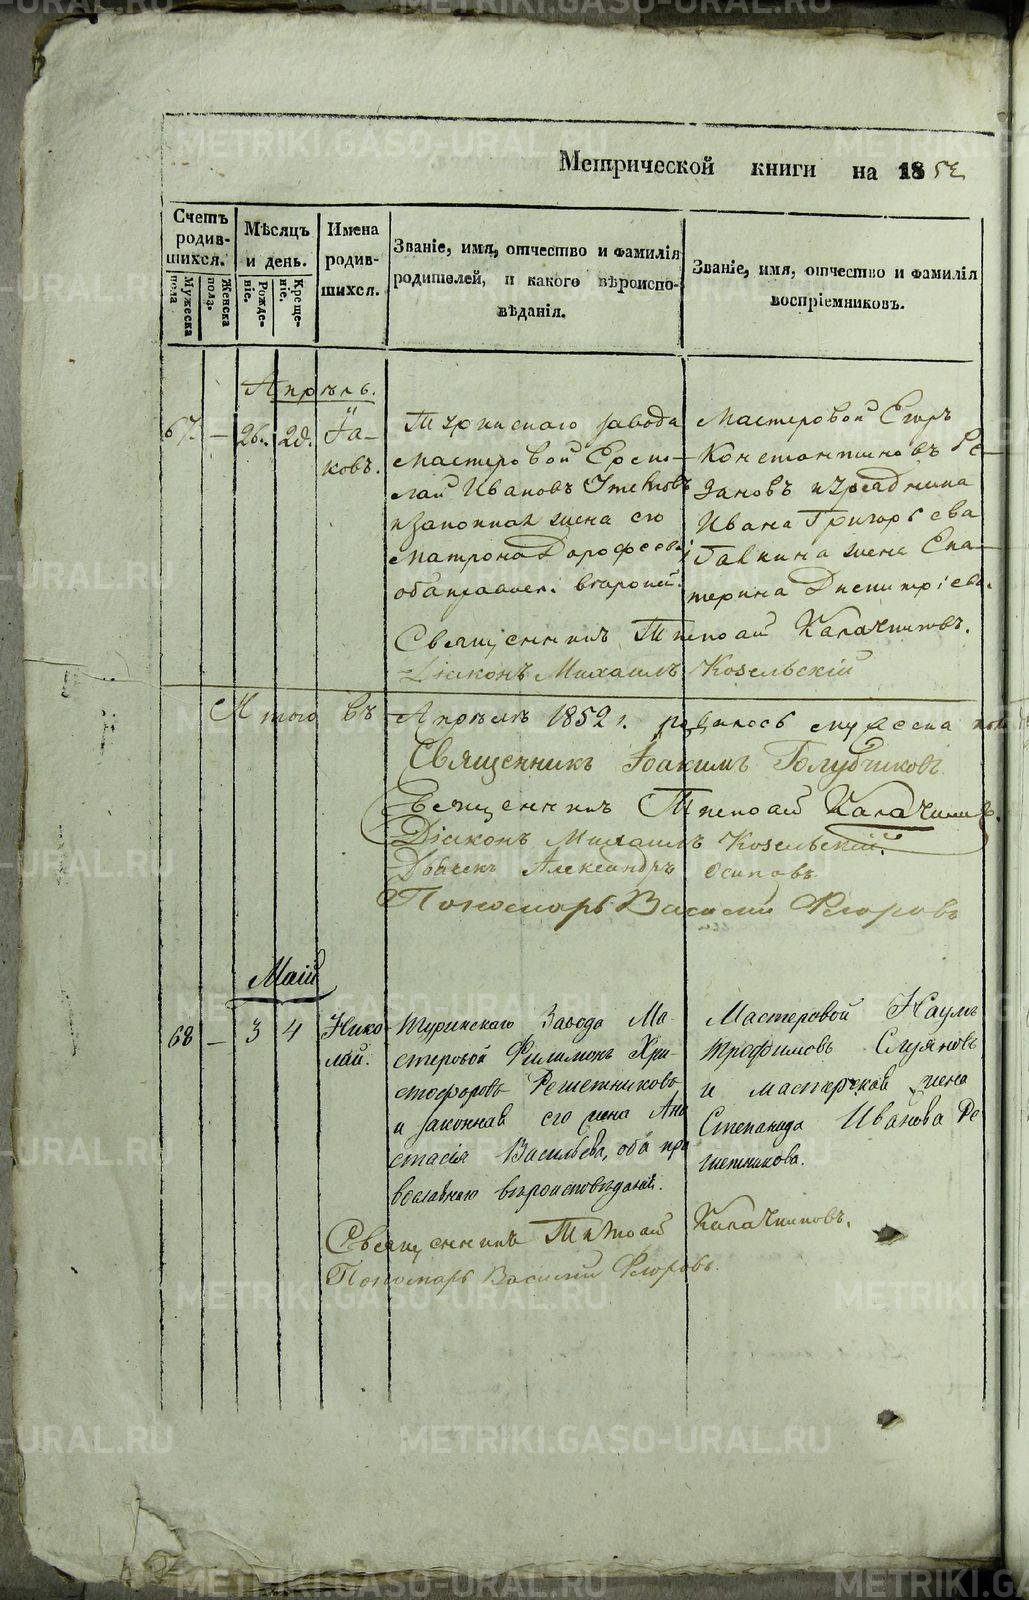 METRIKI.GASO-URAL.RU
Метрической книги на 1852
Счетъ родив-шихся.
Мужеска пола
Женска пола.
Мѣсяцъ и день.
Рожде-ніе.
Креще-ніе.
Имена родив-шихся.
Званіе, имя, отчество и фамилія
родителей, и какого вѣроиспо-
вѣданія.
Званіе, имя, отчество и фамилія
воспріемниковъ.
Апрѣль.
67. — 26. 28. Іа-
ковъ.
Туринскаго завода
мастеровой Ермо-
лай Ивановъ
и законная жена его
Матрона Дорофеева
оба правосл. вѣроисп.
Мастеровой Егоръ
Константиновъ Ре-
зановъ и урядника
Ивана Григорьева
Галкина жена Ека-
терина Димитріева.
Священникъ Тимофей Калачниковъ.
Діаконъ Михаилъ Козельскій
Итого въ Апрѣлѣ 1852 г. родилось мужеска пола
Священникъ Іоакимъ Голубчиковъ.
Священникъ Тимофей Калачниковъ.
Діаконъ Михаилъ Козельскій.
Дьячекъ Александръ Осиповъ
Пономарь Василій Флоровъ
Маій
68 — 3 4 Нико
лай.
Туринскаго Завода Ма-
стеровой Филимонъ Хри-
стофоровъ Решетниковъ
и законная его жена Ана
стасія Васильева, оба пра
вославнаго вѣроисповѣданія.
Мастеровой Наумъ
Трофимовъ
и мастерская жена
Степанида Иванова Ре
шетникова.
Священникъ Тимофей Калачниковъ.
Пономарь Василій Флоровъ.